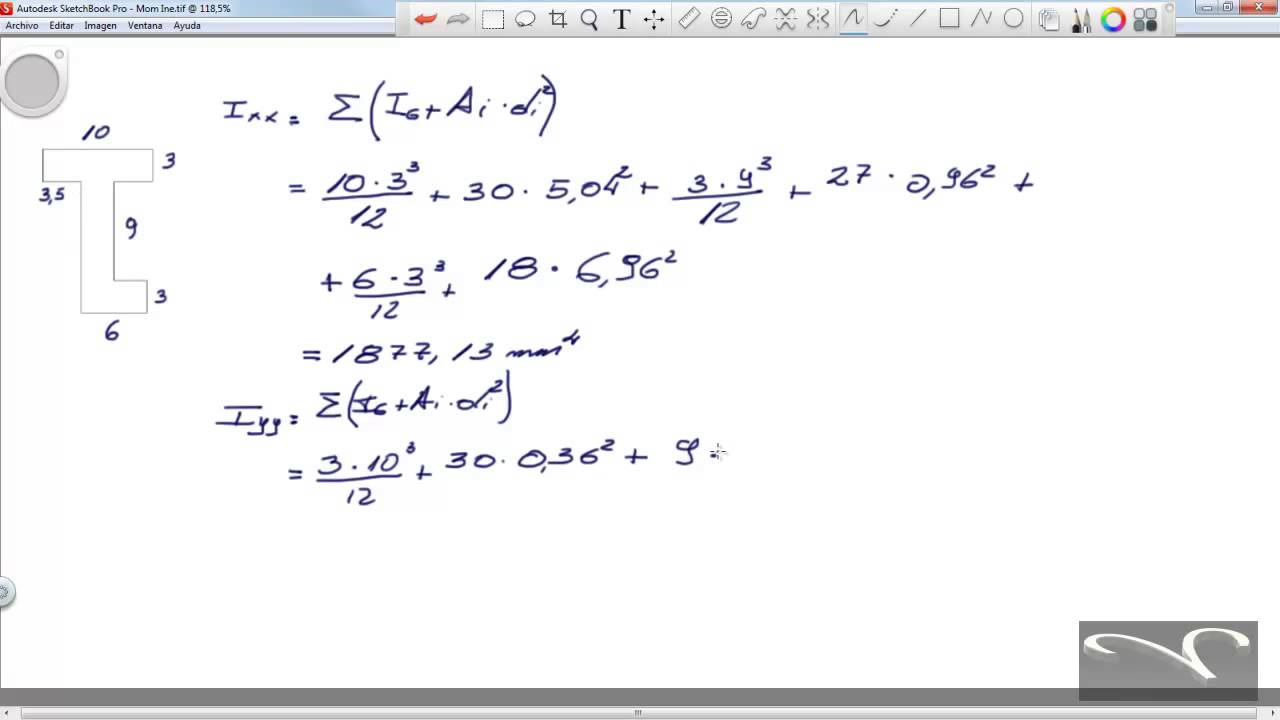 Autodesk SketchBook Pro - Mom Ine.tif @ 118,5%
Archivo Editar Imagen Ventana Ayuda
10
3
3,5
9
3
6
Ixx = Σ(IG + Ai · di²)
= 10 · 3³/12 + 30 · 5,04² + 3 · 9³/12 + 27 · 0,96² +
+ 6 · 3³/12 + 18 · 6,96²
= 1877,13 mm⁴
Iyy = Σ(IG + Ai · di²)
= 3 · 10³/12 + 30 · 0,36² + 9 ·